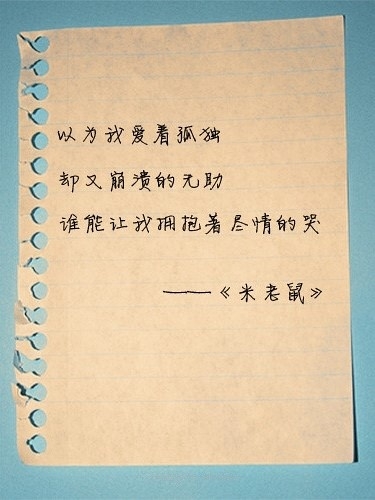 以为我爱着孤独
却又崩溃的无助
谁能让我拥抱著尽情的哭
——《米老鼠》